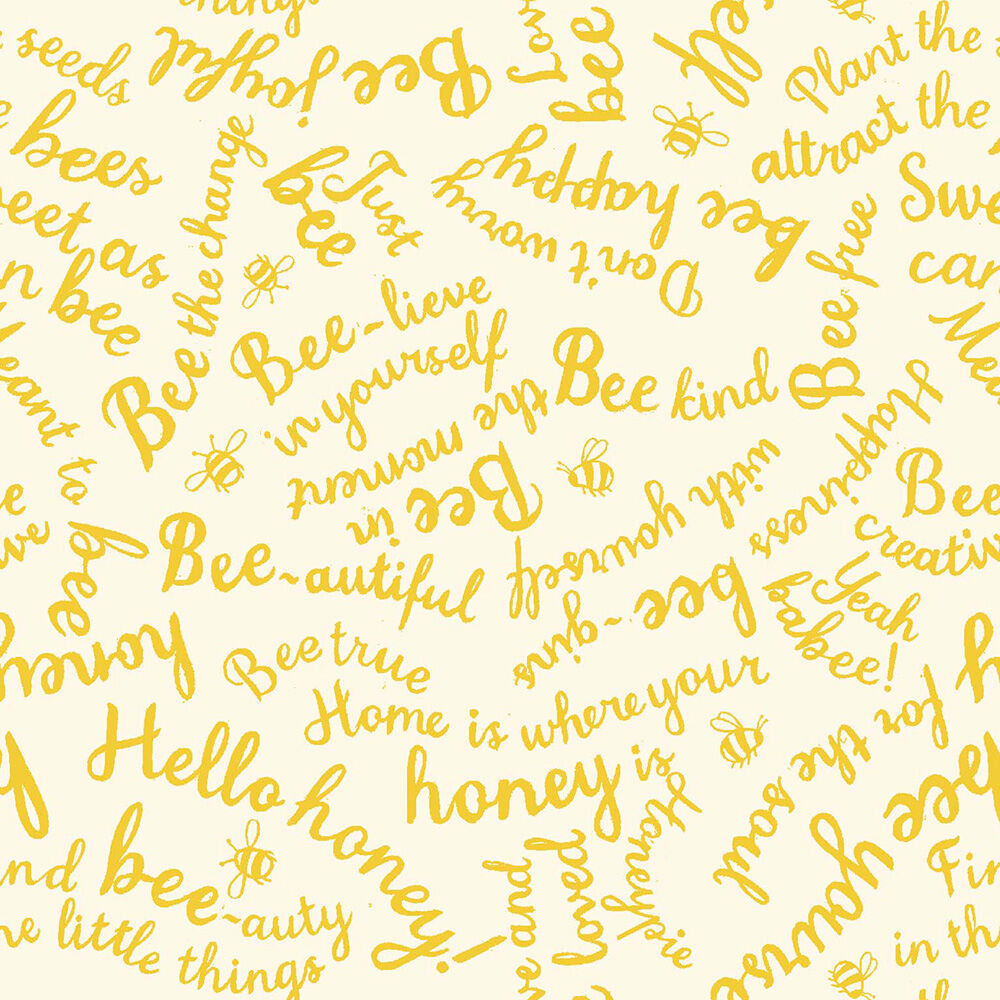 things
seeds
bees
eet as
n bee
Bee joyful
Love
bee
elf
Plant the
attract the
Swe
can
Mea
Bee the change
Just
bee
Don't worry
bee happy
Bee free
Bee-lieve
in yourself
Bee kind
Bee in
the moment
Happiness
bee-gins
with yourself
Bee
creativ
eant to
bee
Bee-autiful
Yeah
babee!
honey
Bee true
Home is where your
honey is
Hello honey!
Honeypie
for the soul
bee
yourse
Fin
in th
nd bee-auty
e little things
and
loved